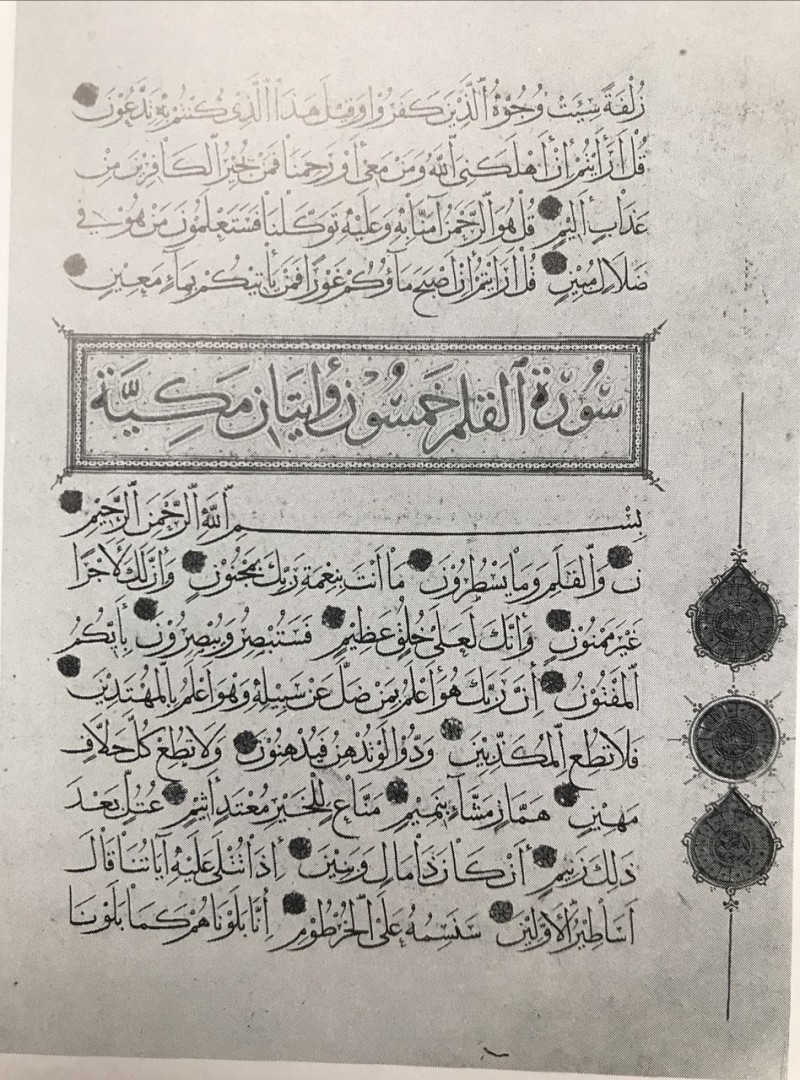 زُلْفَةً سِيئَتْ وُجُوهُ ٱلَّذِينَ كَفَرُوا وَقِيلَ هَذَا ٱلَّذِي كُنْتُمْ بِهِ تَدَّعُونَ
قُلْ أَرَأَيْتُمْ أَنْ أَهْلَكَنِيَ ٱللَّهُ وَمَنْ مَعِيَ أَوْ رَحِمَنَا فَمَنْ يُجِيرُ ٱلْكَافِرِينَ مِنْ
عَذَابٍ أَلِيمٍ قُلْ هُوَ ٱلرَّحْمَنُ آمَنَّا بِهِ وَعَلَيْهِ تَوَكَّلْنَا فَسَتَعْلَمُونَ مَنْ هُوَ فِي
ضَلَالٍ مُبِينٍ قُلْ أَرَأَيْتُمْ أَنْ أَصْبَحَ مَآؤُكُمْ غَوْرًا فَمَنْ يَأْتِيكُمْ بِمَآءٍ مَعِينٍ
سُورَةُ ٱلْقَلَمِ خَمْسُونَ وَأيَتَانِ مَكِيَّة
بِسْمِ ٱللَّهِ ٱلرَّحْمَنِ ٱلرَّحِيمِ
نٓ وَٱلْقَلَمِ وَمَا يَسْطُرُونَ مَا أَنْتَ بِنِعْمَةِ رَبِّكَ بِمَجْنُونٍ وَإِنَّ لَكَ لَأَجْرًا
غَيْرَ مَمْنُونٍ وَإِنَّكَ لَعَلَى خُلُقٍ عَظِيمٍ فَسَتُبْصِرُ وَيُبْصِرُونَ بِأَيِّكُمُ
ٱلْمَفْتُونُ إِنَّ رَبَّكَ هُوَ أَعْلَمُ بِمَنْ ضَلَّ عَنْ سَبِيلِهِ وَهُوَ أَعْلَمُ بِٱلْمُهْتَدِينَ
فَلَا تُطِعِ ٱلْمُكَذِّبِينَ وَدُّوا لَوْ تُدْهِنُ فَيُدْهِنُونَ وَلَا تُطِعْ كُلَّ حَلَّافٍ
مَهِينٍ هَمَّازٍ مَشَّآءٍ بِنَمِيمٍ مَنَّاعٍ لِلْخَيْرِ مُعْتَدٍ أَثِيمٍ عُتُلٍّ بَعْدَ
ذَلِكَ زَنِيمٍ أَنْ كَانَ ذَا مَالٍ وَبَنِينَ إِذَا تُتْلَى عَلَيْهِ آيَاتُنَا قَالَ
أَسَاطِيرُ ٱلْأَوَّلِينَ سَنَسِمُهُ عَلَى ٱلْخُرْطُومِ إِنَّا بَلَوْنَاهُمْ كَمَا بَلَوْنَا